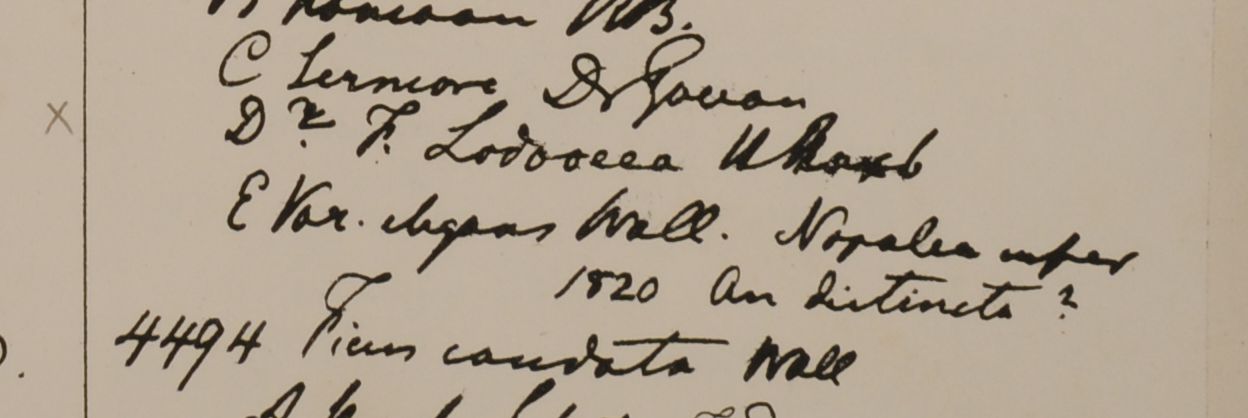 HB.
C Sermore Dr Govan
D? F. Lodoocea H Roxb
E Var. elegans Wall. Nepalia super
1820 An distincta?
4494 Ficus caudata Wall